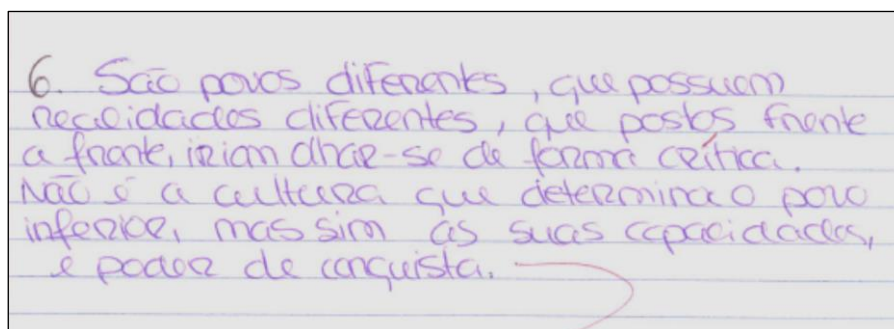 6. São povos diferentes, que possuem
realidades diferentes, que postos frente
a frente, iriam olhar-se de forma crítica.
Não é a cultura que determina o povo
inferior, mas sim as suas capacidades,
e poder de conquista.